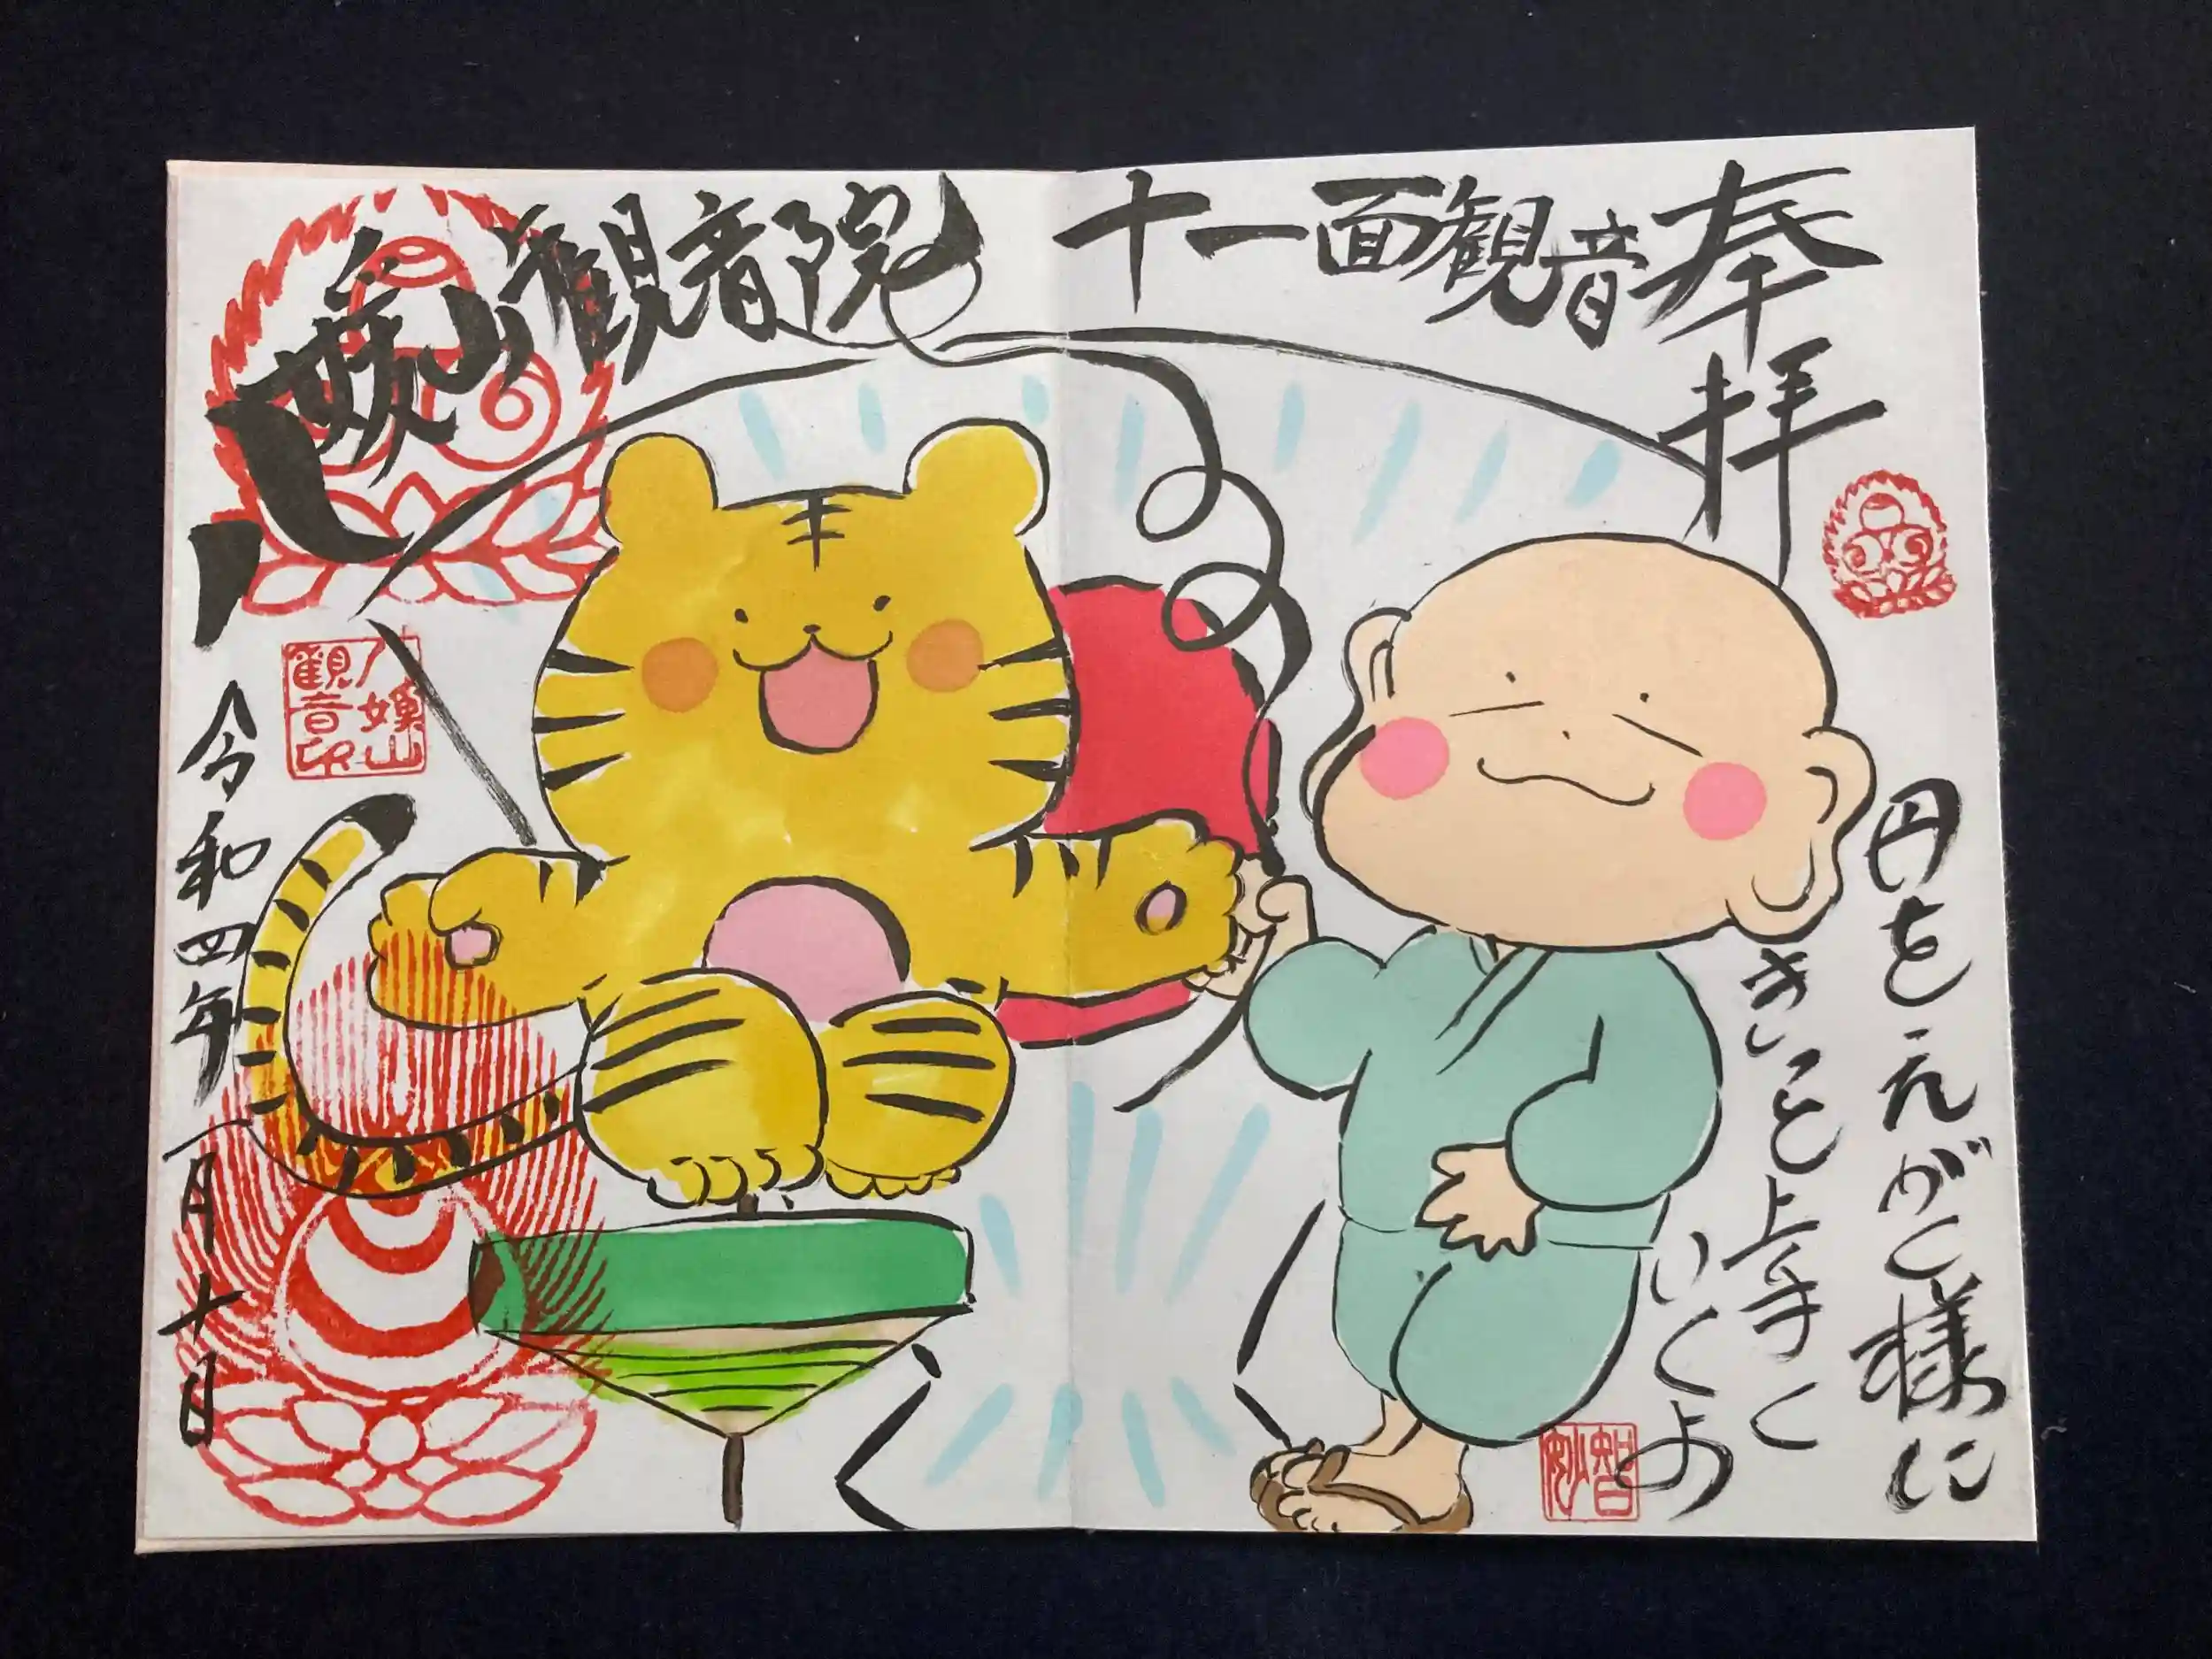 奉拝
十一面観音
円をえがく様に
きっと上手く
いくよ
智妙
山観音院
山
観音印
令和四年一月十日